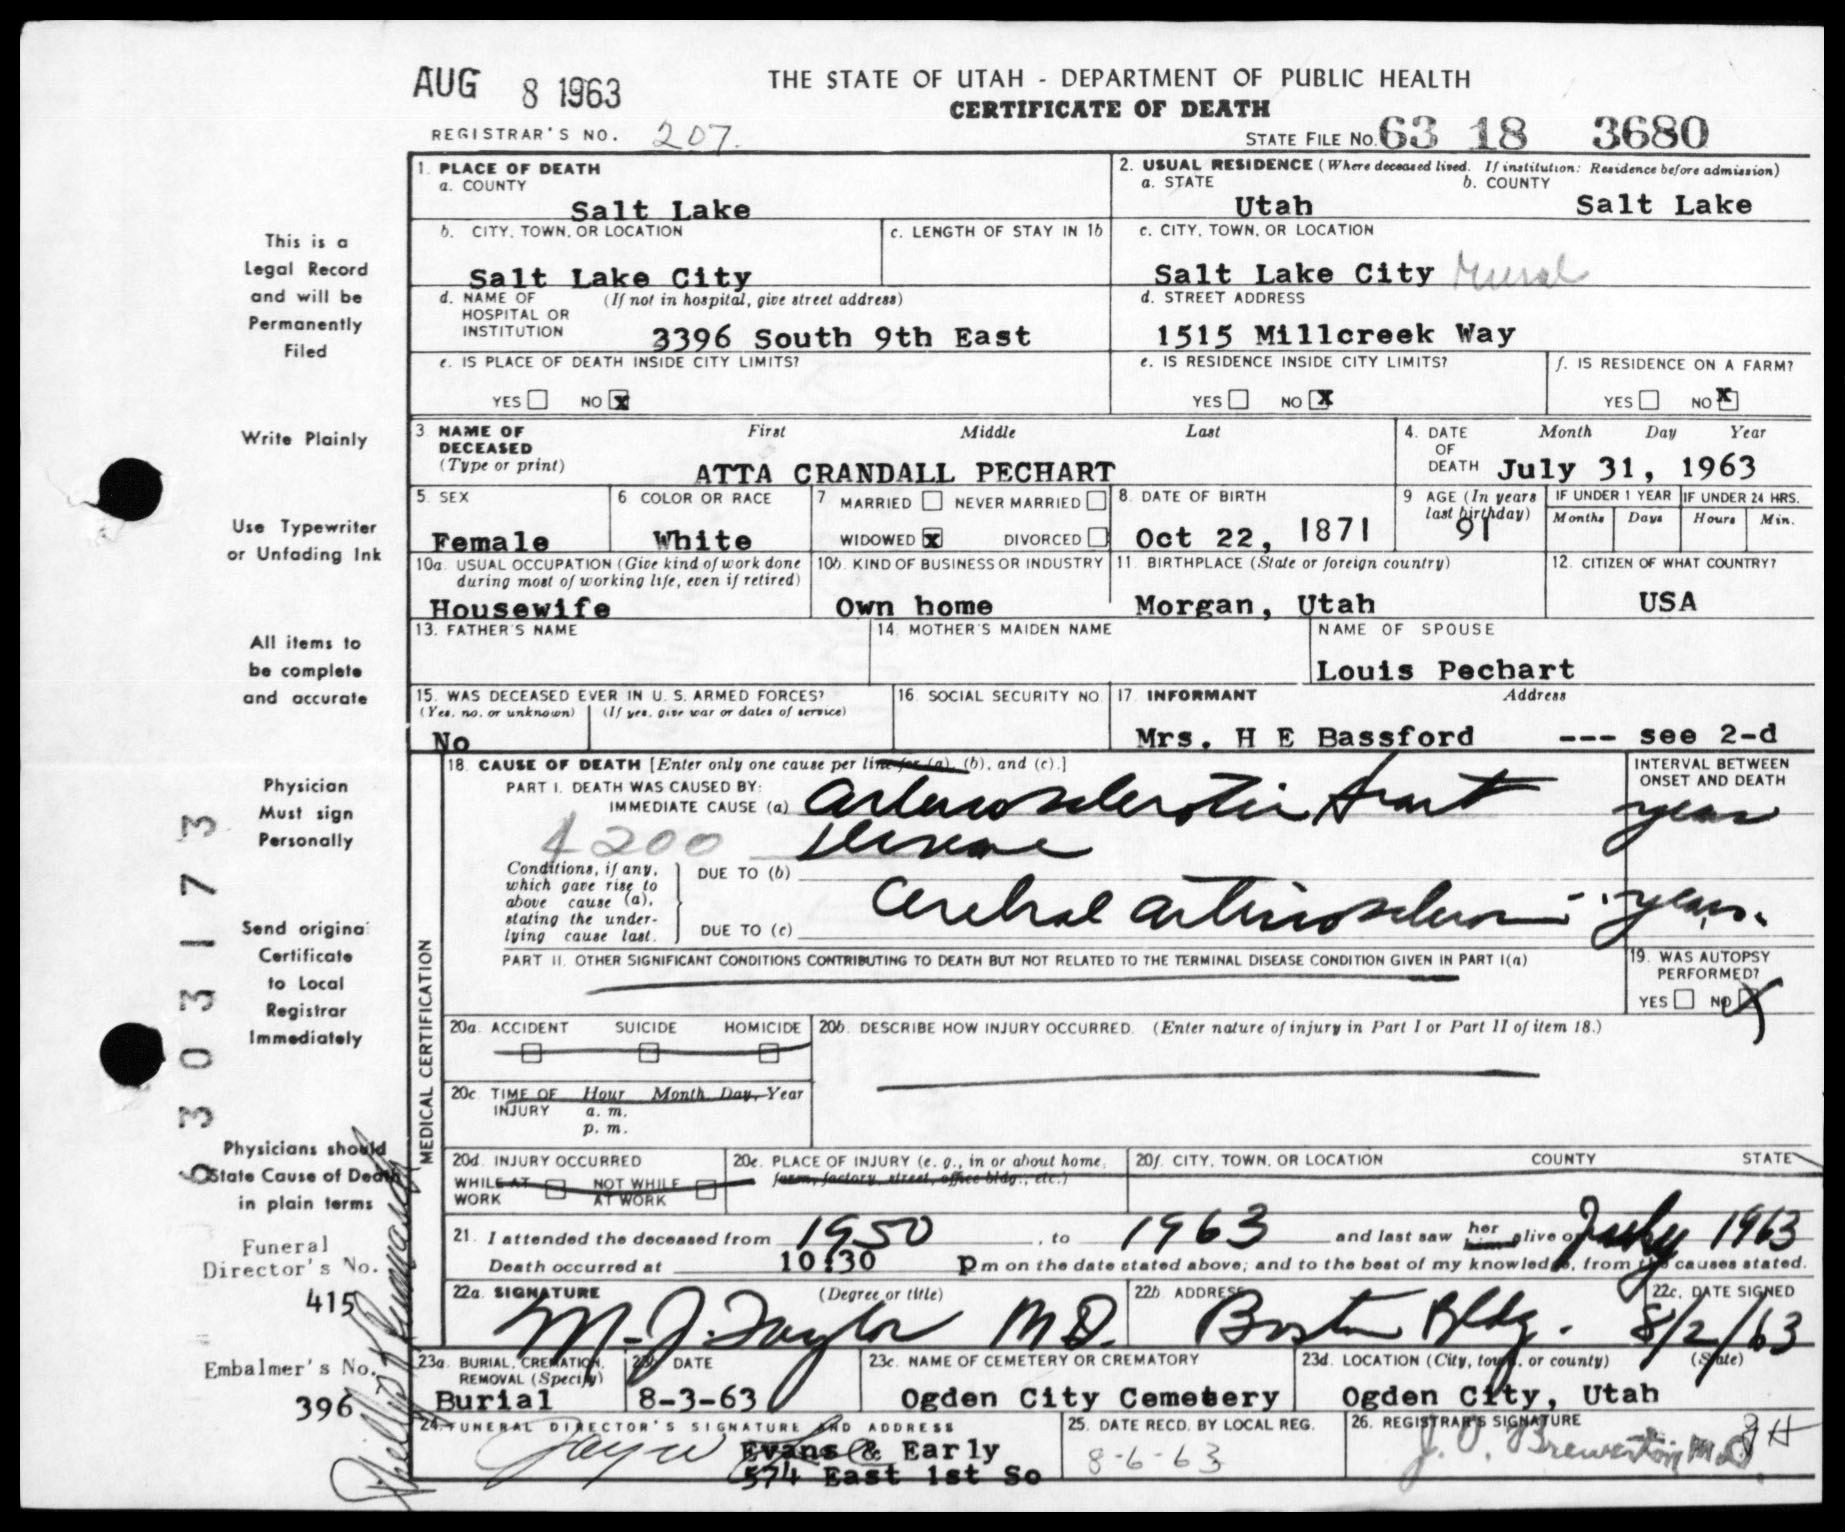 AUG 8 1963
THE STATE OF UTAH - DEPARTMENT OF PUBLIC HEALTH
CERTIFICATE OF DEATH
REGISTRAR'S NO. 207.
STATE FILE NO. 63 18 3680
1. PLACE OF DEATH
a. COUNTY
Salt Lake
2. USUAL RESIDENCE (Where deceased lived. If institution: Residence before admission)
a. STATE b. COUNTY
Utah Salt Lake
b. CITY, TOWN, OR LOCATION c. LENGTH OF STAY IN 1b
Salt Lake City
c. CITY, TOWN, OR LOCATION
Salt Lake City Rural
d. NAME OF HOSPITAL OR INSTITUTION (If not in hospital, give street address)
3396 South 9th East
d. STREET ADDRESS
1515 Millcreek Way
e. IS PLACE OF DEATH INSIDE CITY LIMITS?
YES NO X
e. IS RESIDENCE INSIDE CITY LIMITS?
YES NO X
f. IS RESIDENCE ON A FARM?
YES NO X
3 NAME OF DECEASED (Type or print) First Middle Last
ATTA CRANDALL PECHART
4. DATE OF DEATH Month Day Year
July 31, 1963
5. SEX
Female
6 COLOR OR RACE
White
7 MARRIED NEVER MARRIED
WIDOWED X DIVORCED
8. DATE OF BIRTH
Oct 22, 1871
9 AGE (In years last birthday)
91
IF UNDER 1 YEAR IF UNDER 24 HRS.
Months Days Hours Min.
10a. USUAL OCCUPATION (Give kind of work done during most of working life, even if retired)
Housewife
10b. KIND OF BUSINESS OR INDUSTRY
Own home
11. BIRTHPLACE (State or foreign country)
Morgan, Utah
12. CITIZEN OF WHAT COUNTRY?
USA
13. FATHER'S NAME
14. MOTHER'S MAIDEN NAME
NAME OF SPOUSE
Louis Pechart
15. WAS DECEASED EVER IN U. S. ARMED FORCES?
(Yes, no, or unknown) (If yes, give war or dates of service)
No
16. SOCIAL SECURITY NO.
17. INFORMANT Address
Mrs. H E Bassford --- see 2-d
MEDICAL CERTIFICATION
18. CAUSE OF DEATH [Enter only one cause per line for (a), (b), and (c).]
PART I. DEATH WAS CAUSED BY:
IMMEDIATE CAUSE (a) Arteriosclerotic heart
disease
4200
INTERVAL BETWEEN ONSET AND DEATH
years
Conditions, if any, which gave rise to above cause (a), stating the underlying cause last.
DUE TO (b)
Cerebral arteriosclerosis years.
DUE TO (c)
PART II. OTHER SIGNIFICANT CONDITIONS CONTRIBUTING TO DEATH BUT NOT RELATED TO THE TERMINAL DISEASE CONDITION GIVEN IN PART I(a)
19. WAS AUTOPSY PERFORMED?
YES NO X
20a. ACCIDENT SUICIDE HOMICIDE
20b. DESCRIBE HOW INJURY OCCURRED. (Enter nature of injury in Part I or Part II of item 18.)
20c. TIME OF INJURY Hour Month, Day, Year
a. m.
p. m.
20d. INJURY OCCURRED
WHILE AT WORK NOT WHILE AT WORK
20e. PLACE OF INJURY (e. g., in or about home, farm, factory, street, office bldg., etc.)
20f. CITY, TOWN, OR LOCATION COUNTY STATE
21. I attended the deceased from 1950, to 1963 and last saw her him alive on July 1963
Death occurred at 10:30 p m on the date stated above; and to the best of my knowledge, from the causes stated.
22a. SIGNATURE (Degree or title)
M. J. Taylor M D.
22b. ADDRESS
Boston Bldg.
22c. DATE SIGNED
8/2/63
23a. BURIAL, CREMATION, REMOVAL (Specify)
Burial
23b. DATE
8-3-63
23c. NAME OF CEMETERY OR CREMATORY
Ogden City Cemetery
23d. LOCATION (City, town, or county) (State)
Ogden City, Utah
24. FUNERAL DIRECTOR'S SIGNATURE AND ADDRESS
Evans & Early
574 East 1st So
25. DATE RECD. BY LOCAL REG.
8-6-63
26. REGISTRAR'S SIGNATURE
J. O. Brewerton M D
This is a
Legal Record
and will be
Permanently
Filed
Write Plainly
Use Typewriter
or Unfading Ink
All items to
be complete
and accurate
Physician
Must sign
Personally
Send original
Certificate
to Local
Registrar
Immediately
Physicians should
State Cause of Death
in plain terms
Funeral
Director's No.
415
Embalmer's No.
396
63 03173